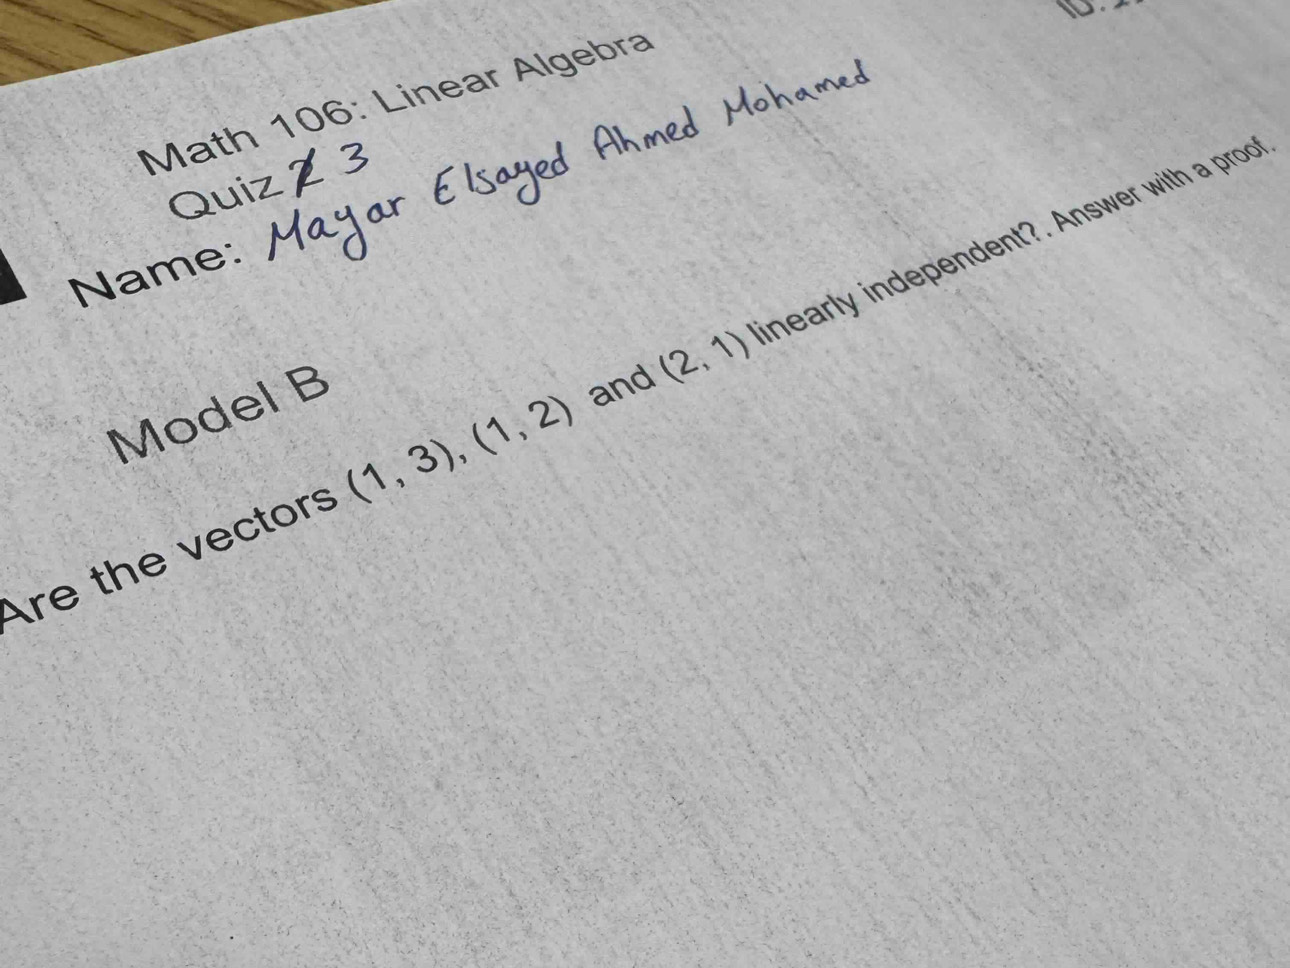 ID:
Math 106: Linear Algebra
Quiz 3
Name: Mayar Elsayed Ahmed Mohamed
Model B
Are the vectors (1, 3), (1, 2) and (2, 1) linearly independent?. Answer with a proof.